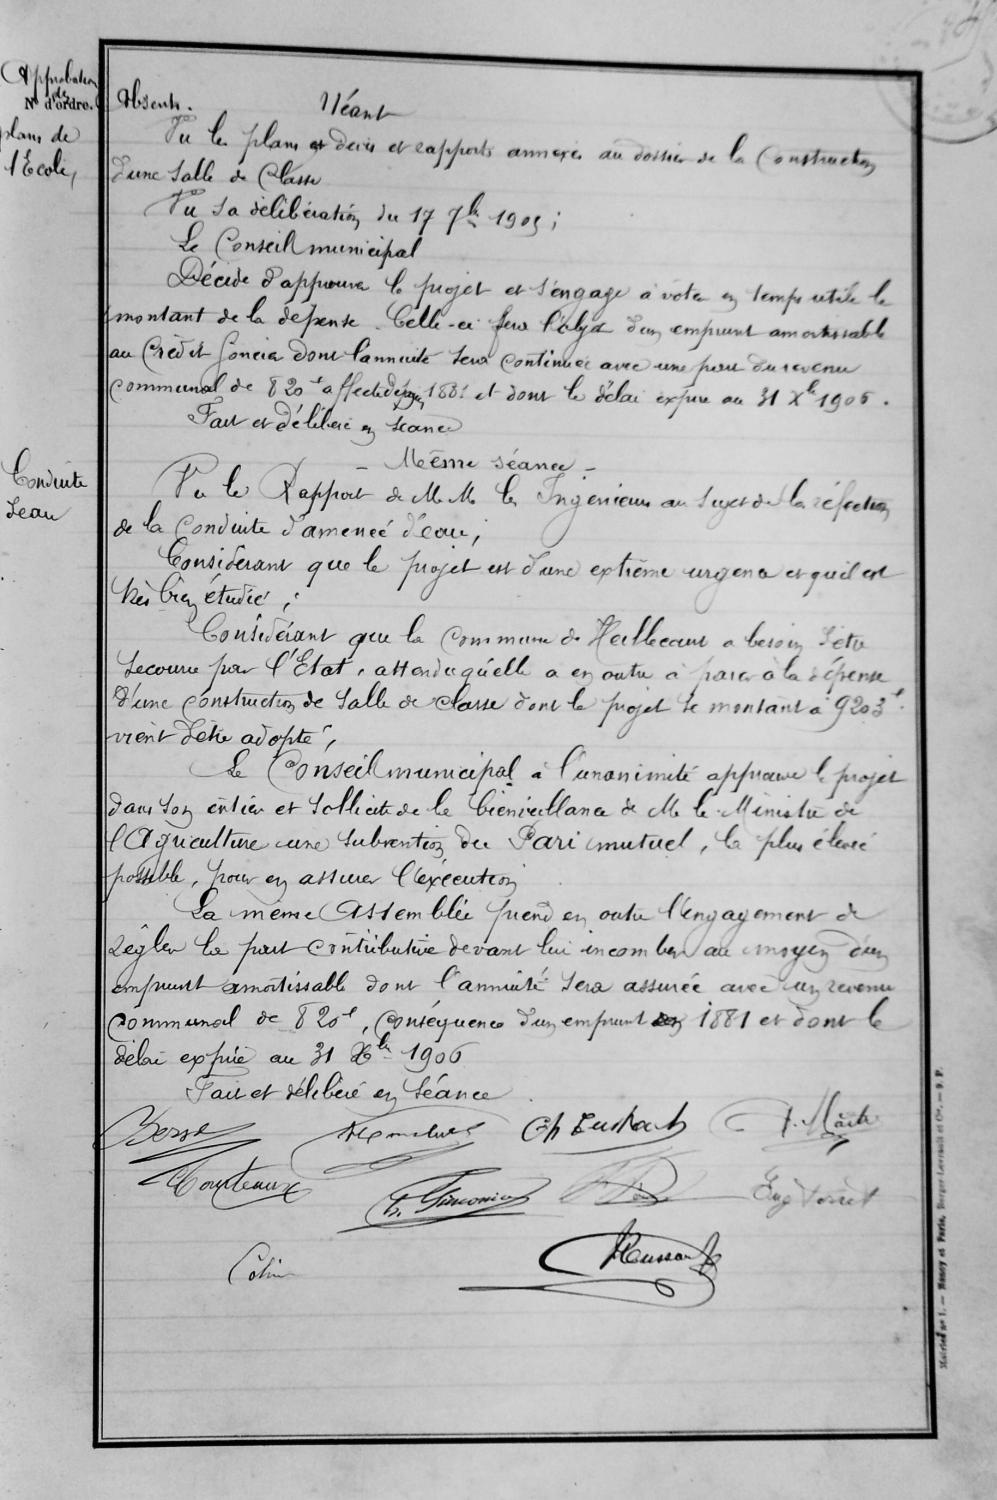 Approbation
de
N° d'ordre.
plans de
l'Ecole,
Absents. Néant
Vu les plans et devis et rapports annexés au dossier de la Construction
d'une Salle de Classe
Vu sa délibération du 17 7bre 1905;
Le Conseil municipal
Décide d'approuver le projet et s'engage à voter en temps utile le
montant de la dépense. Celle-ci fera l'objet d'un emprunt amortissable
au Crédit foncier dont l'annuité sera continuée avec une part du revenu
communal de 820f affecté depuis 1881 et dont le délai expire au 31 Xbre 1906.
Fait et délibéré en séance
Conduite
d'eau
- Même séance -
Vu le Rapport de M.M. les Ingénieurs au sujet de la réfection
de la conduite d'amenée d'eau;
Considérant que le projet est d'une extrême urgence et qu'il est
très bien étudié;
Considérant que la commune de a besoin d'être
secourue par l'Etat, attendu qu'elle a en outre à parer à la dépense
d'une construction de Salle de classe dont le projet se montant à 9203f
vient d'être adopté,
Le Conseil municipal à l'unanimité approuve le projet
dans son entier et sollicite de la bienveillance de M. le Ministre de
l'Agriculture une subvention du Pari mutuel, la plus élevée
possible, pour en assurer l'exécution
La même Assemblée prend en outre l'engagement de
régler la part contributive devant lui incomber au moyen d'un
emprunt amortissable dont l'annuité sera assurée avec un revenu
communal de 820f, conséquence d'un emprunt 1881 et dont le
délai expire au 31 Xbre 1906
Fait et délibéré en Séance
Courteaux
Colin
Nancy et Paris, Berger-Levrault et Cie.